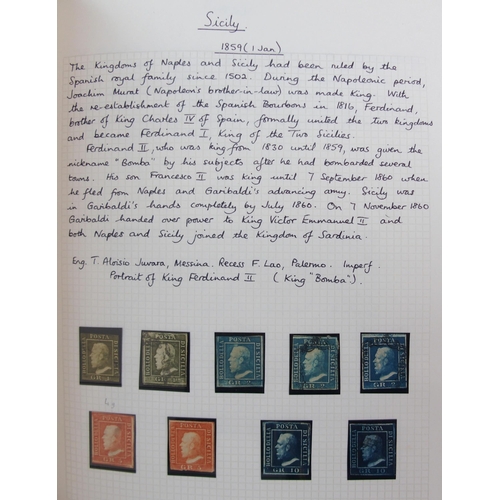 Sicily
1859 (1 Jan)
The Kingdoms of Naples and Sicily had been ruled by the
Spanish royal family since 1502. During the Napoleonic period,
Joachim Murat (Napoleon's brother-in-law) was made King. With
the re-establishment of the Spanish Bourbons in 1816, Ferdinand,
brother of King Charles IV of Spain, formally united the two kingdoms
and became Ferdinand I, King of the Two Sicilies.
Ferdinand II, who was king from 1830 until 1859, was given the
nickname "Bomba" by his subjects after he had bombarded several
towns. His son Francesco II was king until 7 September 1860 when
he fled from Naples and Garibaldi's advancing army. Sicily was
in Garibaldi's hands completely by July 1860. On 7 November 1860
Garibaldi handed over power to King Victor Emmanuel II and
both Naples and Sicily joined the Kingdom of Sardinia.
Eng. T. Aloisio Juvara, Messina. Recess F. Lao, Palermo. Imperf.
Portrait of King Ferdinand II (King "Bomba").
POSTA POSTA POSTA POSTA POSTA
BOLLO DELLA DI SICILIA
GR 2
POSTA POSTA POSTA POSTA
BOLLO DELLA DI SICILIA
GR 10 GR 10